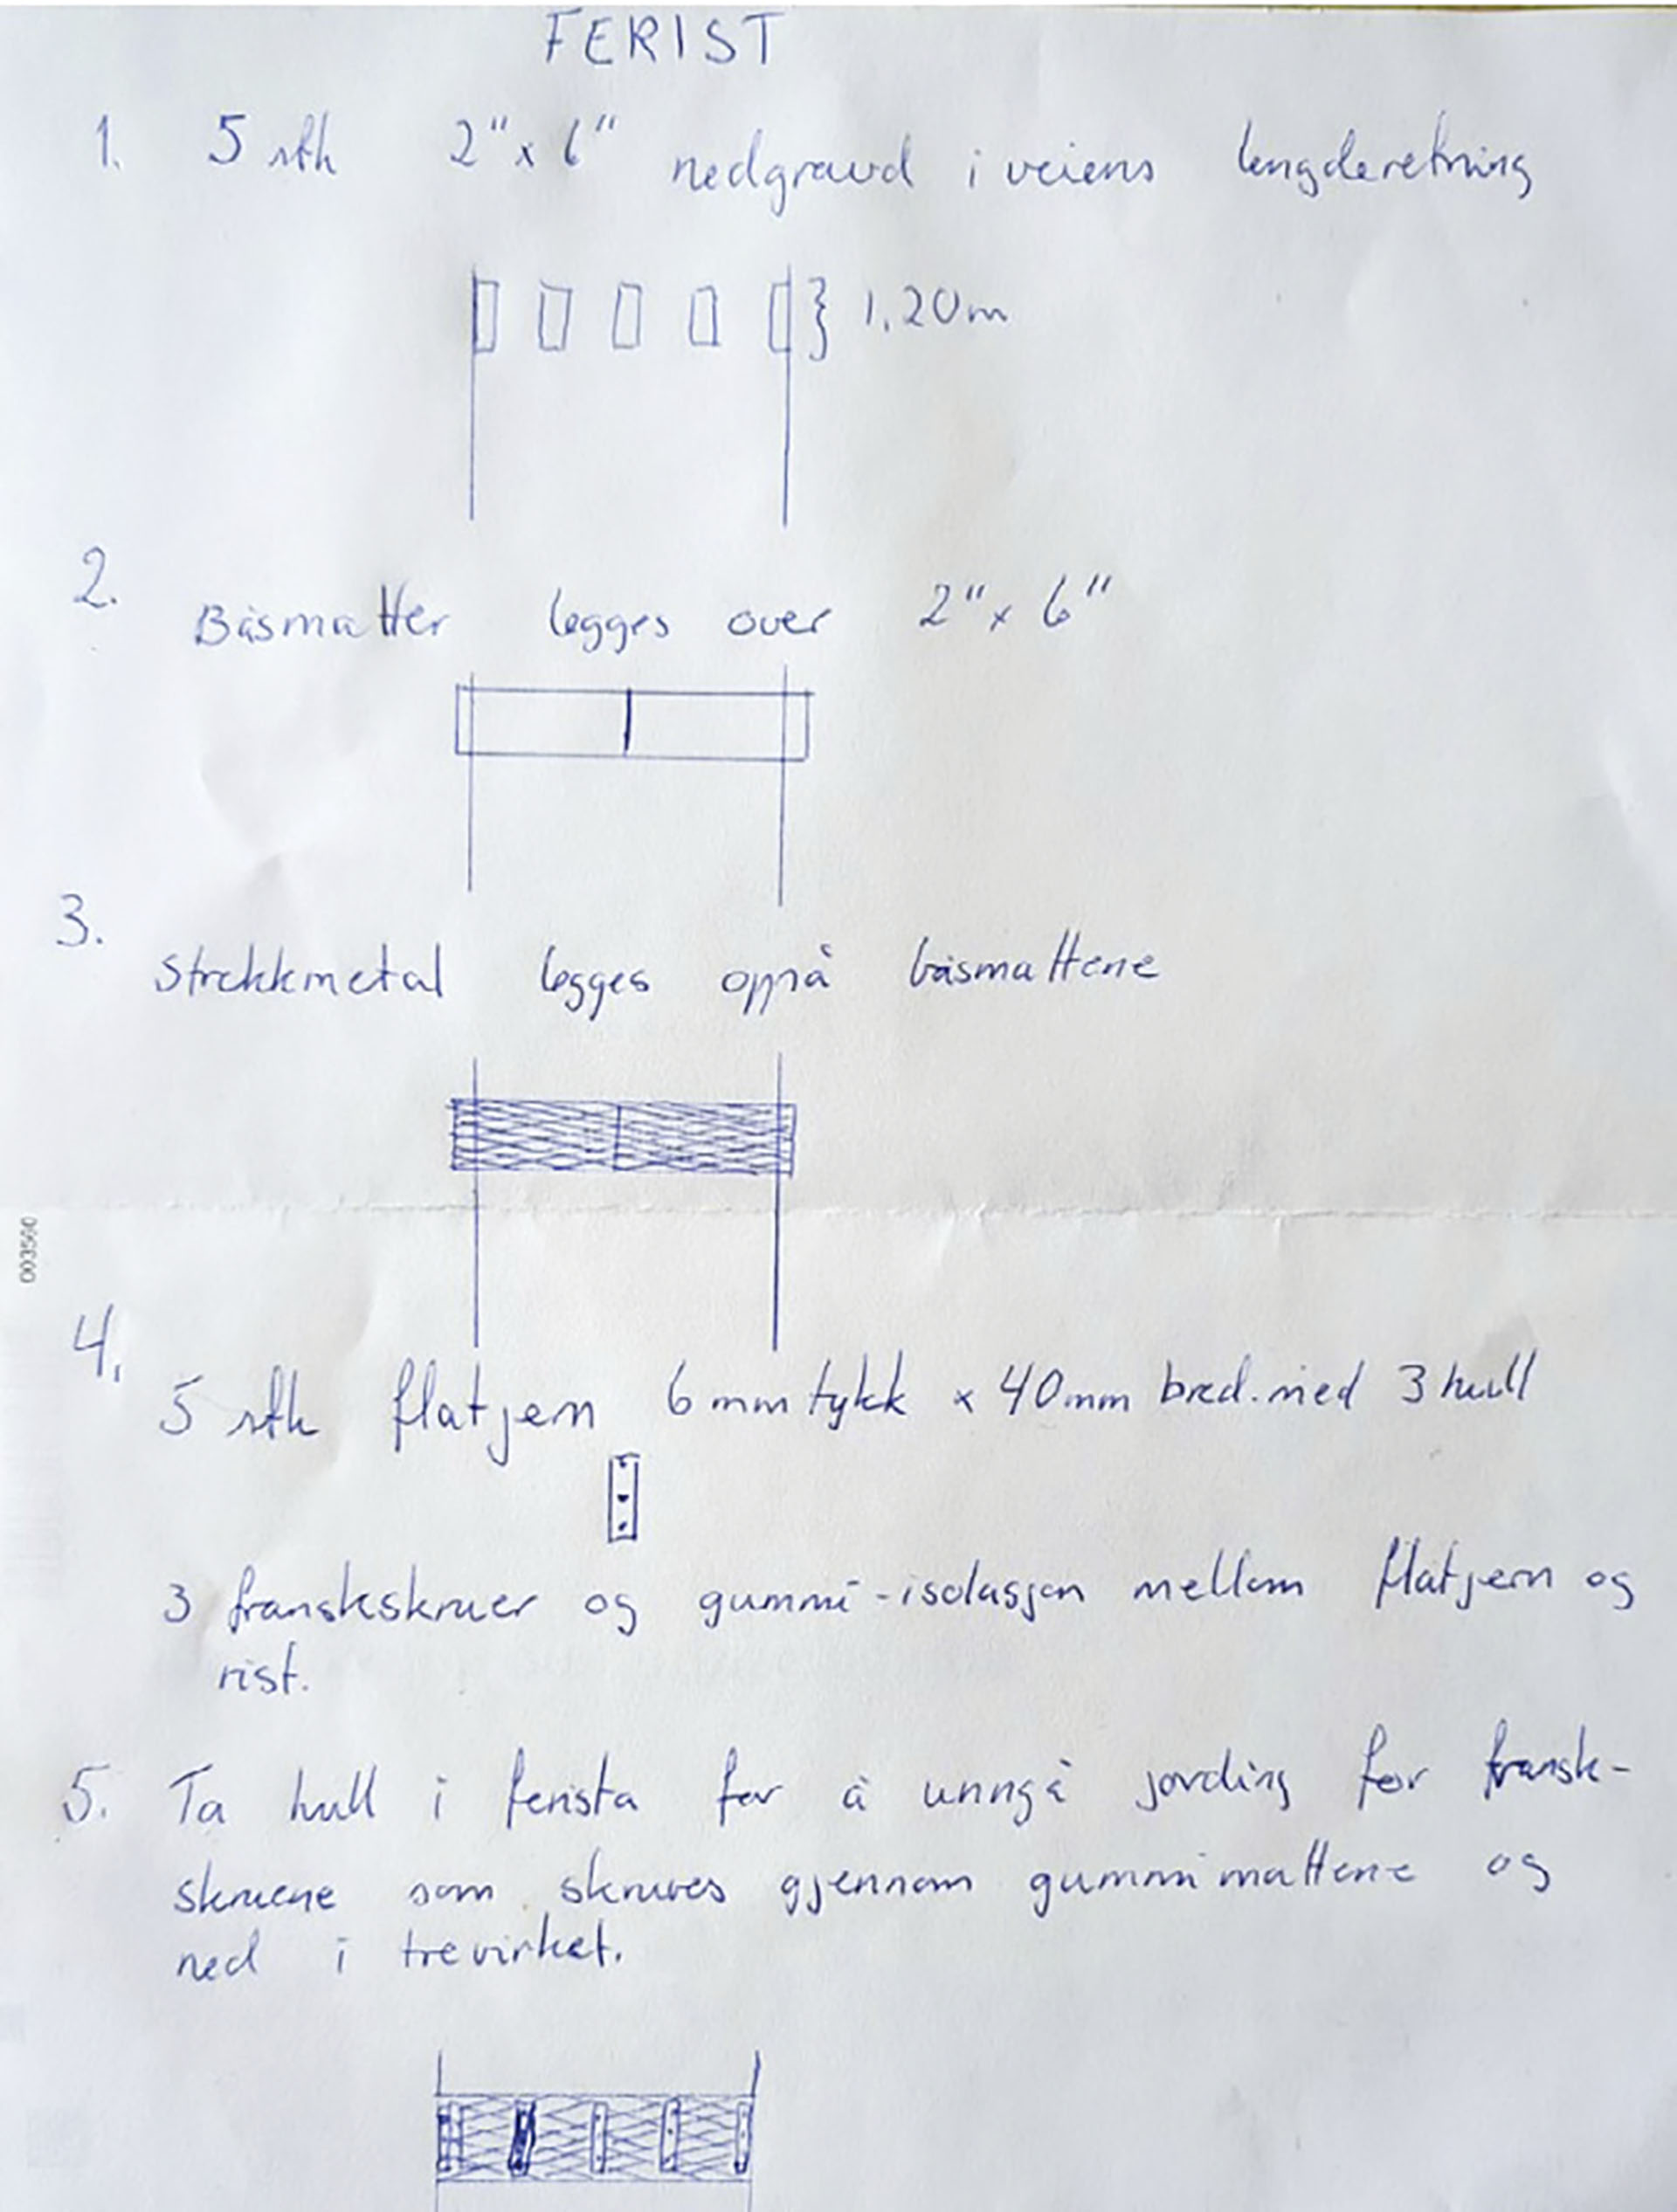 FERIST
1. 5 stk 2"x 6" nedgravd i veiens lengderetning
1.20m
2. Båsmatter legges over 2"x 6"
3. Strekkmetal legges oppå båsmattene
003560
4. 5 stk flatjern 6mm tykk x 40mm bred. med 3 hull
3 franskskruer og gummi-isolasjon mellom flatjern og
rist.
5. Ta hull i ferista for å unngå jording for fransk-
skruene som skrues gjennom gummimattene og
ned i trevirket.